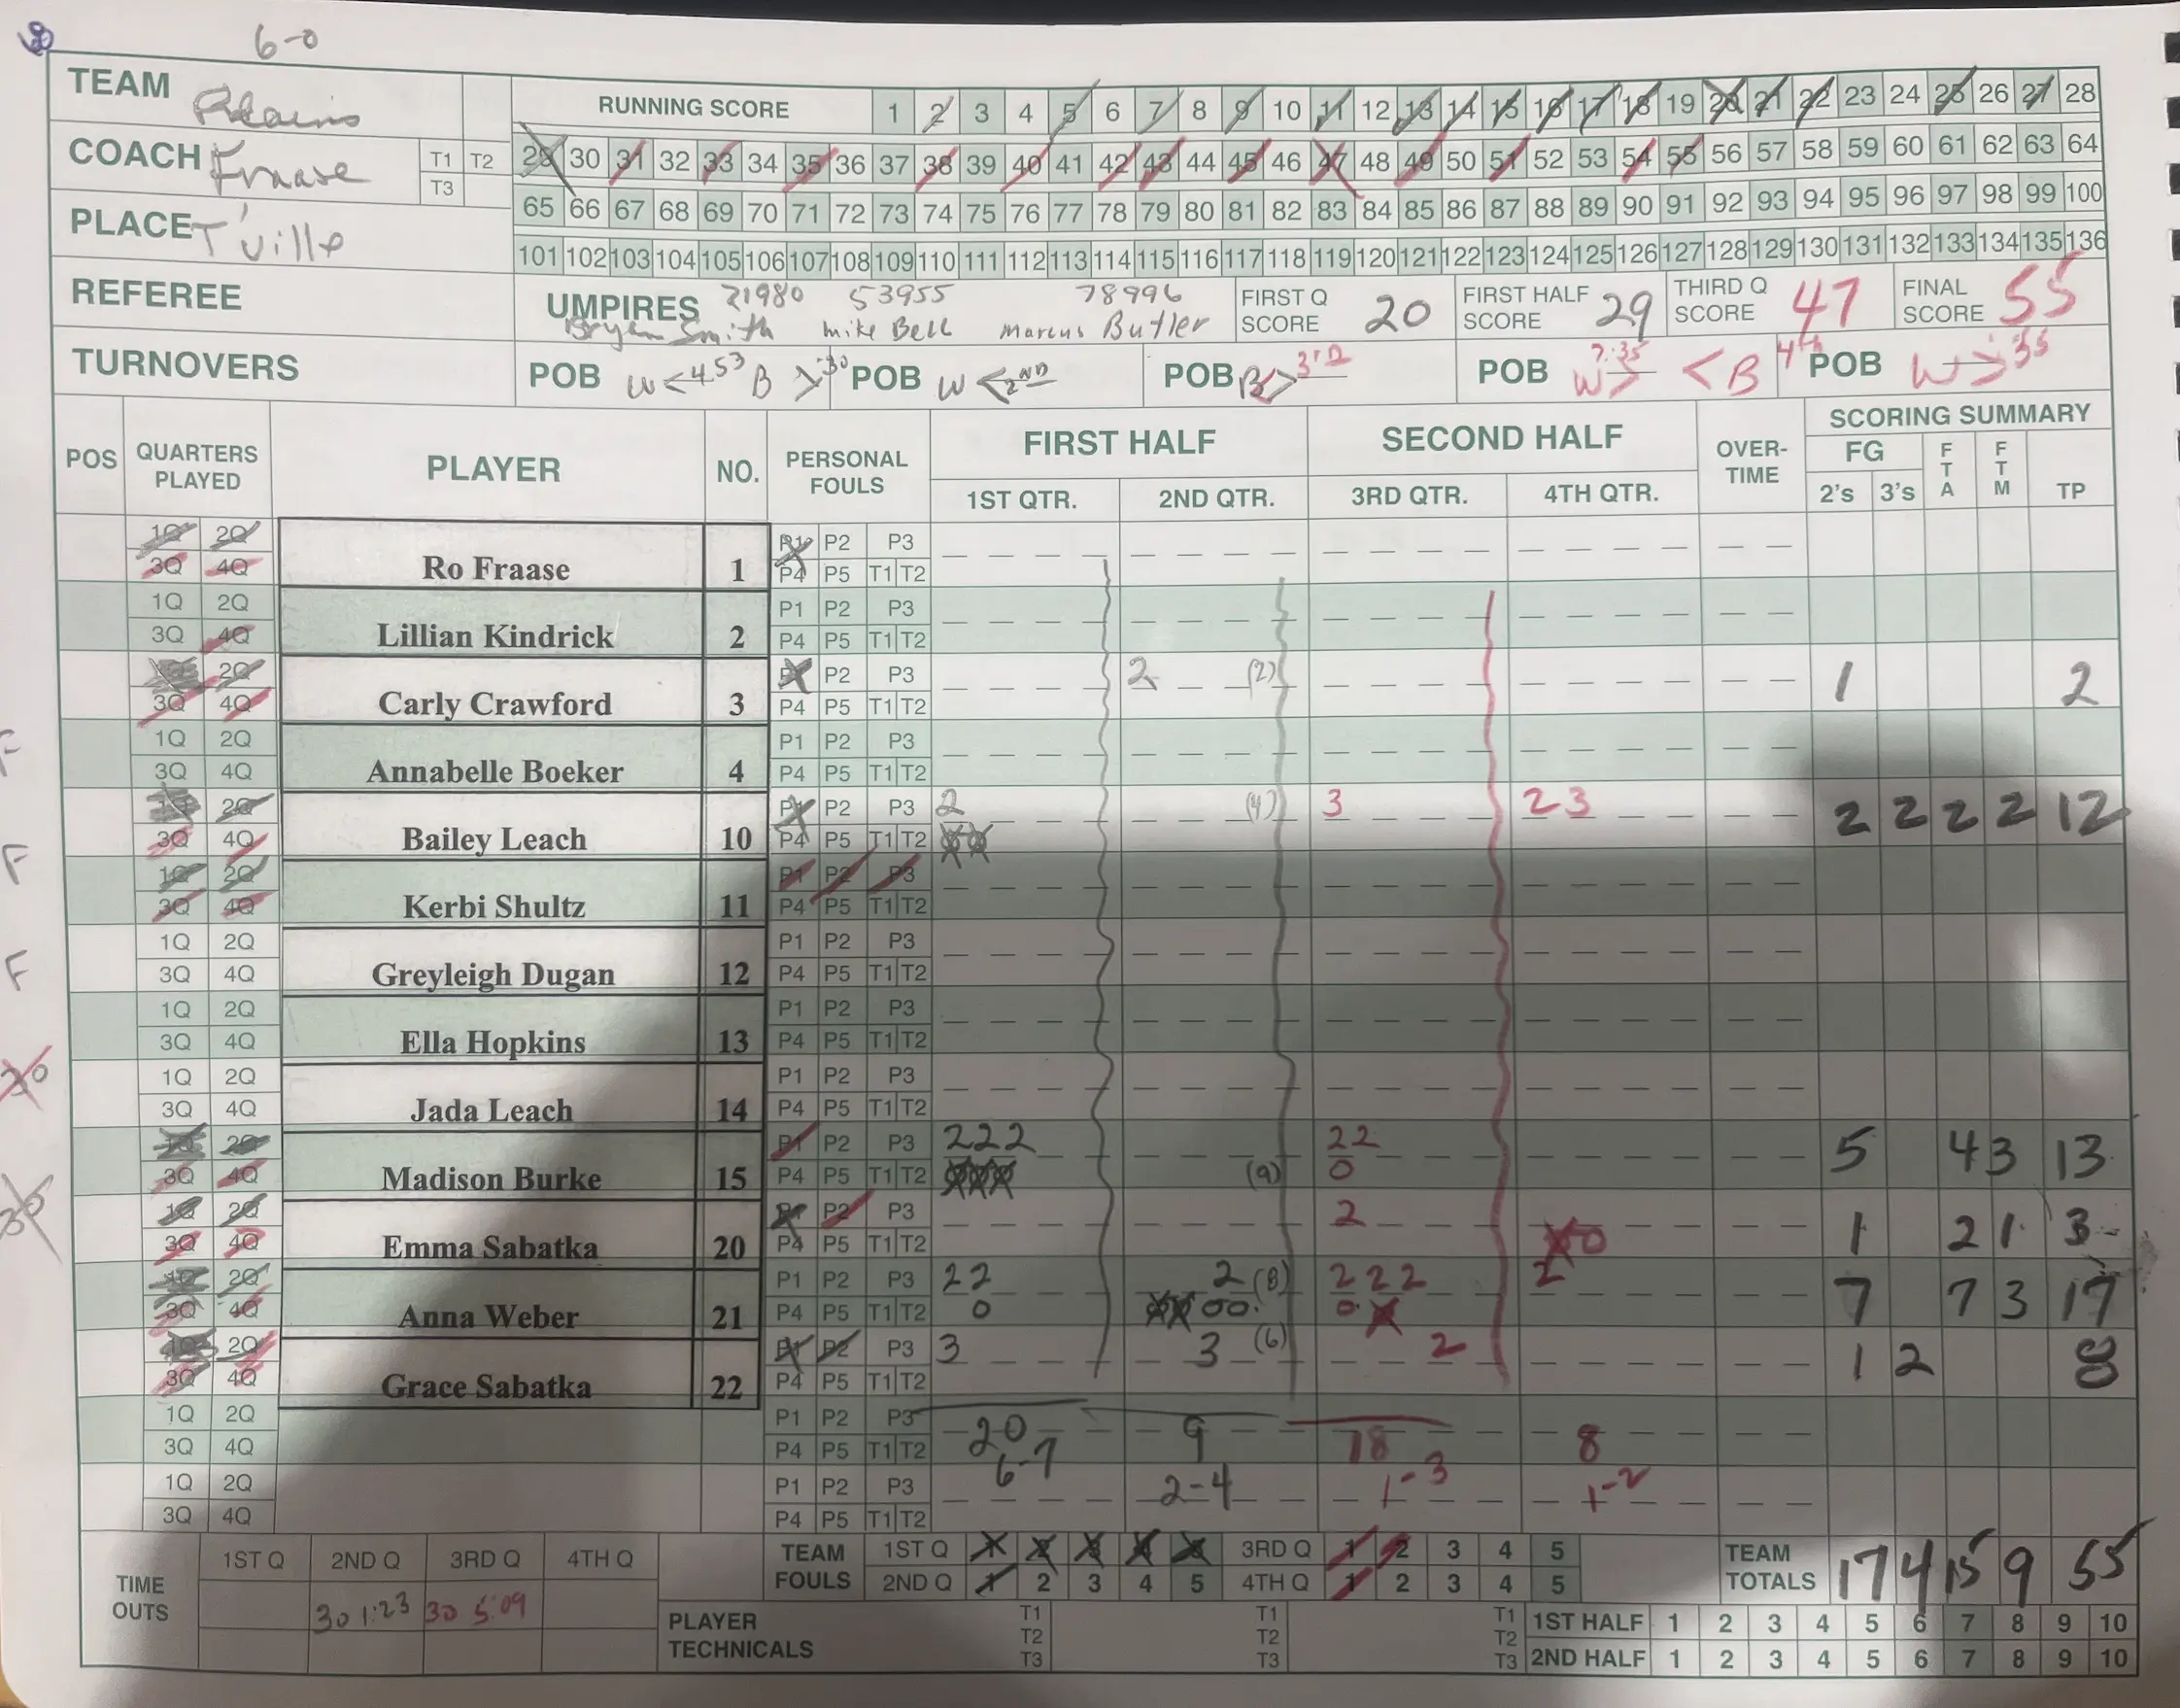 6-0
TEAM
COACH Fraase T1 T2 T3
PLACE T'ville
REFEREE
TURNOVERS
RUNNING SCORE 1 2 3 4 5 6 7 8 9 10 11 12 13 14 15 16 17 18 19 20 21 22 23 24 25 26 27 28
29 30 31 32 33 34 35 36 37 38 39 40 41 42 43 44 45 46 47 48 49 50 51 52 53 54 55 56 57 58 59 60 61 62 63 64
65 66 67 68 69 70 71 72 73 74 75 76 77 78 79 80 81 82 83 84 85 86 87 88 89 90 91 92 93 94 95 96 97 98 99 100
101 102 103 104 105 106 107 108 109 110 111 112 113 114 115 116 117 118 119 120 121 122 123 124 125 126 127 128 129 130 131 132 133 134 135 136
UMPIRES 21980 53955 78996
Bryan Smith Mike Bell Marcus Butler
FIRST Q SCORE 20 FIRST HALF SCORE 29 THIRD Q SCORE 47 FINAL SCORE 55
POB W < 4:53 B > :30 POB W < 2ND POB B > 3rd POB W > 7:35 < B 4th POB W > :35
POS QUARTERS PLAYED PLAYER NO. PERSONAL FOULS FIRST HALF SECOND HALF OVER-TIME SCORING SUMMARY
1ST QTR. 2ND QTR. 3RD QTR. 4TH QTR. FG 2's 3's FTA FTM TP
1Q 2Q 3Q 4Q Ro Fraase 1 P1 P2 P3 P4 P5 T1 T2
1Q 2Q 3Q 4Q Lillian Kindrick 2 P1 P2 P3 P4 P5 T1 T2
1Q 2Q 3Q 4Q Carly Crawford 3 P1 P2 P3 P4 P5 T1 T2 2 (2) 1 2
F 1Q 2Q 3Q 4Q Annabelle Boeker 4 P1 P2 P3 P4 P5 T1 T2
1Q 2Q 3Q 4Q Bailey Leach 10 P1 P2 P3 P4 P5 T1 T2 2 (4) 3 2 3 2 2 2 2 12
F 1Q 2Q 3Q 4Q Kerbi Shultz 11 P1 P2 P3 P4 P5 T1 T2
F 1Q 2Q 3Q 4Q Greyleigh Dugan 12 P1 P2 P3 P4 P5 T1 T2
1Q 2Q 3Q 4Q Ella Hopkins 13 P1 P2 P3 P4 P5 T1 T2
30 1Q 2Q 3Q 4Q Jada Leach 14 P1 P2 P3 P4 P5 T1 T2
1Q 2Q 3Q 4Q Madison Burke 15 P1 P2 P3 P4 P5 T1 T2 2 2 2 (9) 2 2 0 5 4 3 13
30 1Q 2Q 3Q 4Q Emma Sabatka 20 P1 P2 P3 P4 P5 T1 T2 2 0 1 2 1 3
1Q 2Q 3Q 4Q Anna Weber 21 P1 P2 P3 P4 P5 T1 T2 2 2 0 2 (8) 0 0 2 2 2 0 2 7 7 3 17
1Q 2Q 3Q 4Q Grace Sabatka 22 P1 P2 P3 P4 P5 T1 T2 3 3 (6) 2 1 2 8
1Q 2Q 3Q 4Q P1 P2 P3 P4 P5 T1 T2 20 9 18 8
1Q 2Q 3Q 4Q P1 P2 P3 P4 P5 T1 T2 6-7 2-4 1-3 1-2
TIME OUTS 1ST Q 2ND Q 3RD Q 4TH Q
30 1:23 30 5:09
TEAM FOULS 1ST Q 1 2 3 4 5 3RD Q 1 2 3 4 5
2ND Q 1 2 3 4 5 4TH Q 1 2 3 4 5
TEAM TOTALS 17 4 15 9 55
PLAYER TECHNICALS T1 T2 T3 T1 T2 T3 T1 T2 T3
1ST HALF 1 2 3 4 5 6 7 8 9 10
2ND HALF 1 2 3 4 5 6 7 8 9 10